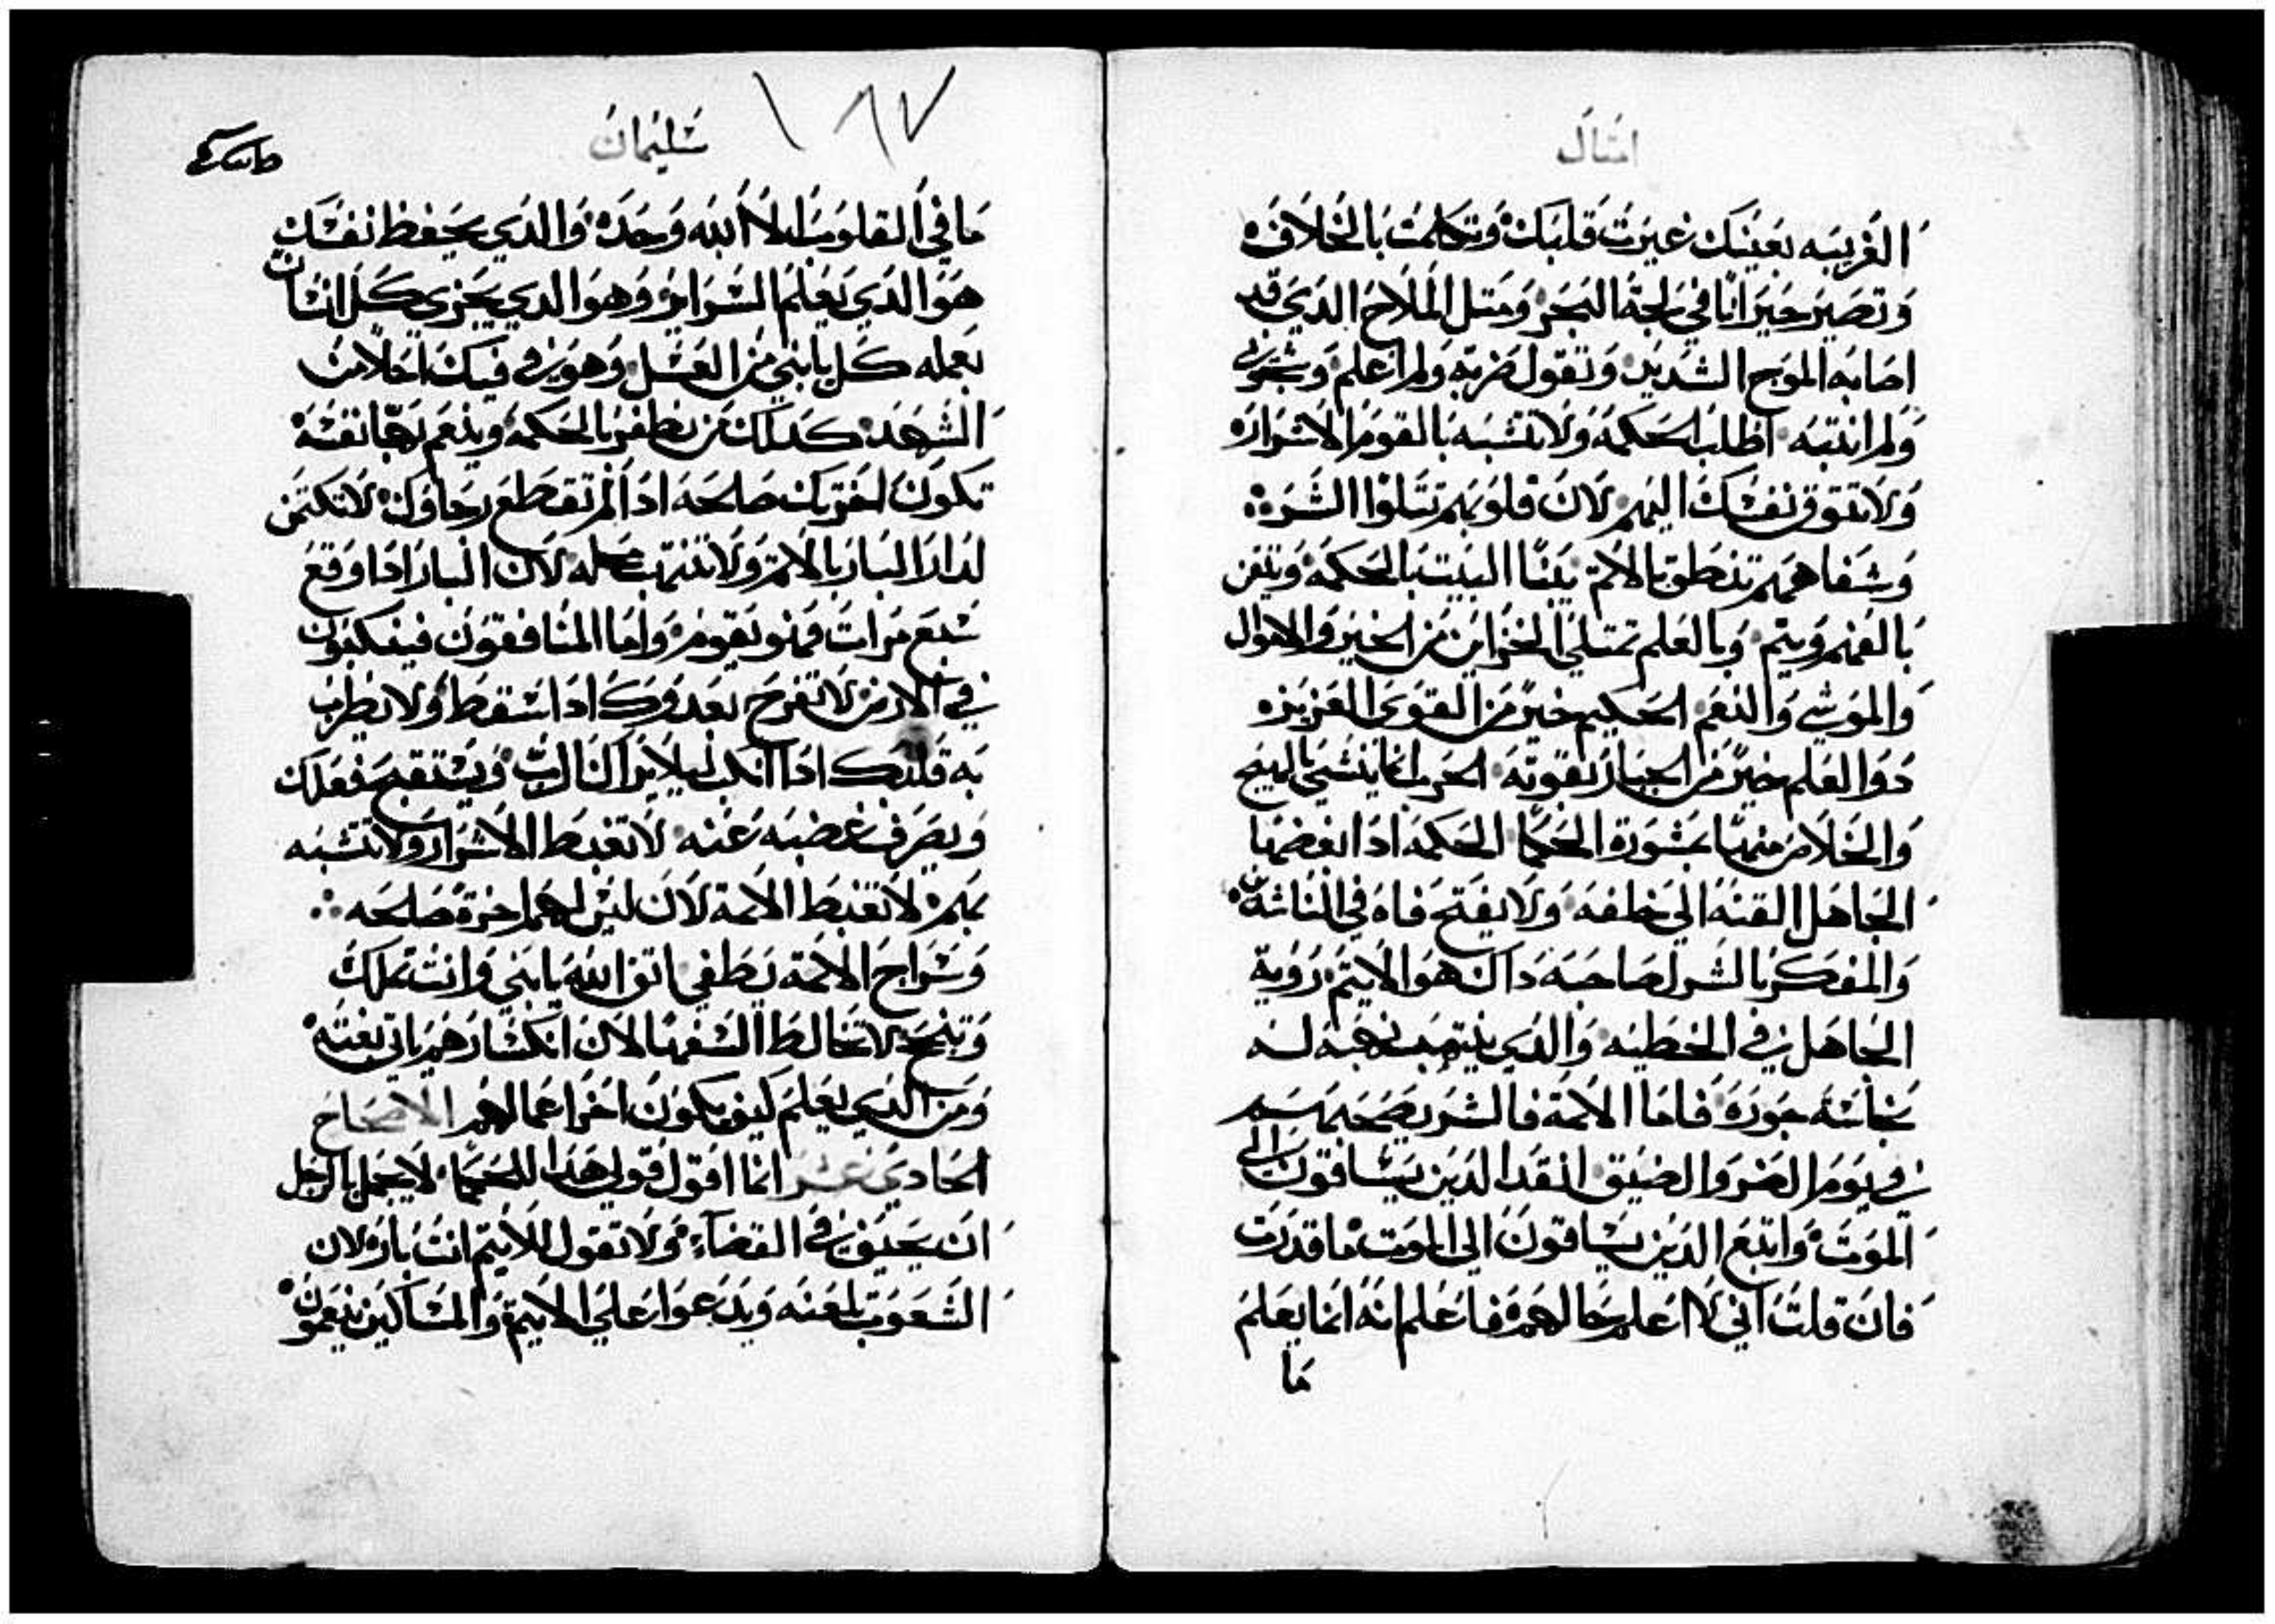 امثال
الغريبه بعينك غيرت قلبك وتكلمت بالخلافه
وتصير حيرانا في لجة البحر ومثل الملاح الذي قد
اصابه الموج الشديد وتقول ضربت ولم اعلم
ولم انتبه اطلب الحكمه ولا تتشبه بالقوم الاشراره
ولا تتوق نفسك اليهم لان قلوبهم تتلوا الشر
وشفاههم تنطق بالاثم يبنا البيت بالحكمه ويتقن
بالفهم ويتم وبالعلم تمتلي الخزاين من الخير والاموال
والموشي والنعم الحكيم خير من القوي العزيزه
ذوا العلم خير من الجبار بقوته الحرب انما ينشي بالهيج
والخلاص منها بمشورة الحكما الحكمه اذا ابغضها
الجاهل القته الي خلفه ولا يفتح فاه في الناشه
والمفكر بالشر لصاحبه داك هو الاثيم روية
الجاهل في الخطيه والذي
نجاسته جوره فاما الاثمة فالشر
في يوم الضر والضيق انقد الذين يساقون الي
الموت وابتع الذين يساقون الي الموت ما قدرت
فان قلت اني لا اعلم حالهم فاعلم انه انما يعلم
ما
سليمان
١٨٧
ما في القلوب الا الله وحده والذي يحفظ نفسك
هو الذي يعلم السراير وهو الذي يجزي كل انسان
بعمله كل يا بني من العسل وهو في فيك احلا من
الشهد كدلك من يظفر بالحكمه وينعم بها نفسه
تكون اخرتك صالحه ادا لم تقطع رجاوك لا تكتمن
لدار البار بالاثم ولا تنتهب محله لان البار ادا وقع
سبع مرات فهو يقوم واما المنافقون فينكبون
في الارض لا تفرح بعدوك ادا سقط ولا يطرب
به قلبك ادا انكب ليلا يراك الرب ويستقبح فعلك
ويصرف غضبه عنه لا تغبط الاشرار ولا تتشبه
بهم لا تغبط الاثمة لان ليس لهم اخرة صالحه
وسراج الاثمة يطفي اتق الله يا بني وانت تملك
وتنجح لا تخالط السفها لان انكسارهم ياتي بغته
ومن الذي يعلم كيف يكون اخر اعمالهم الاصحاح
الحادي عشر انما اقول قولي هذا للحكما لا يجمل بالرجل
ان يحيف في القضاء ولا تقول للاثيم انت باره لان
الشعوب تلعنه ويدعوا علي الاثيم والمساكين ينعمون